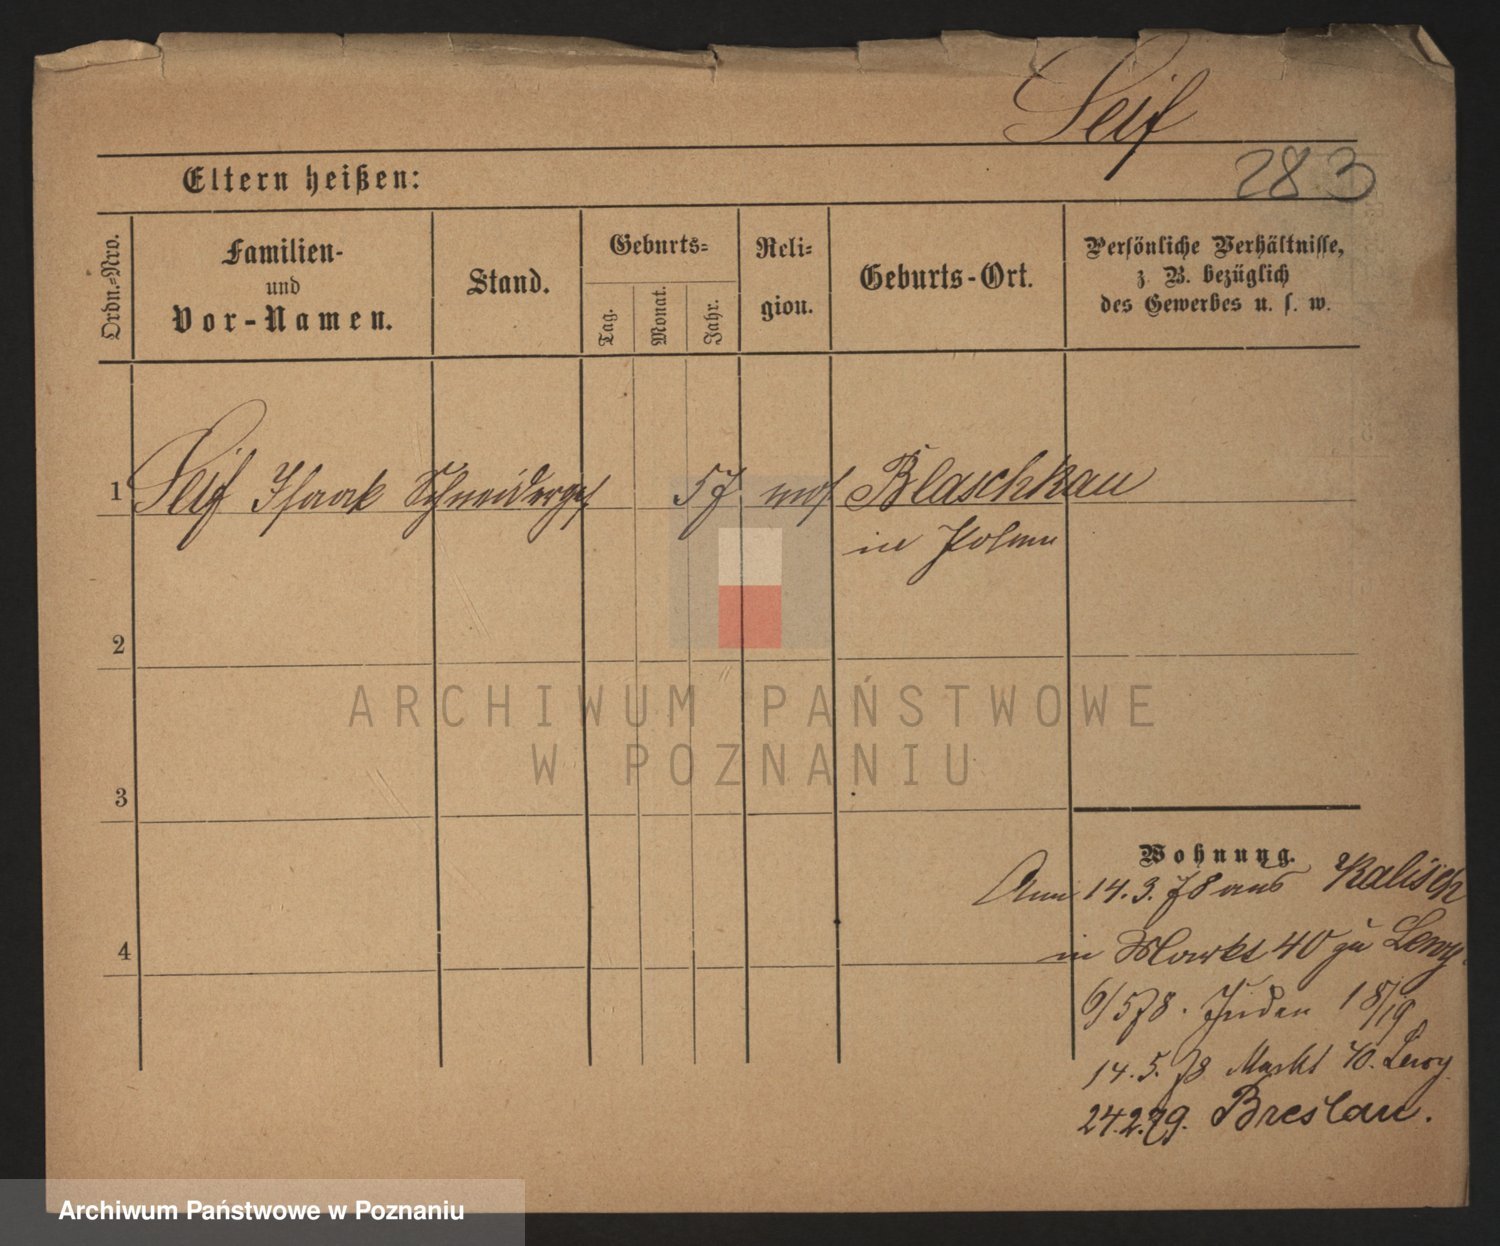 Seif
283
Eltern heißen:
Ordn.-Nro.
Familien-
und
Vor-Namen.
Stand.
Geburts-
Tag.
Monat.
Jahr.
Reli-
gion.
Geburts-Ort.
Persönliche Verhältnisse,
z. B. bezüglich
des Gewerbes u. s. w.
1 Seif Isaak Schneiderges 57 mos Blaschkau
in Polen
2
3
4
ARCHIWUM PAŃSTWOWE
W POZNANIU
Wohnung.
14.3.78 aus Kalisch
in Markt 40 zu Lewy
6/5 78. Juden 18/19
14.5.78 Markt 40. Lewy
24.2.79. Breslau.
Archiwum Państwowe w Poznaniu